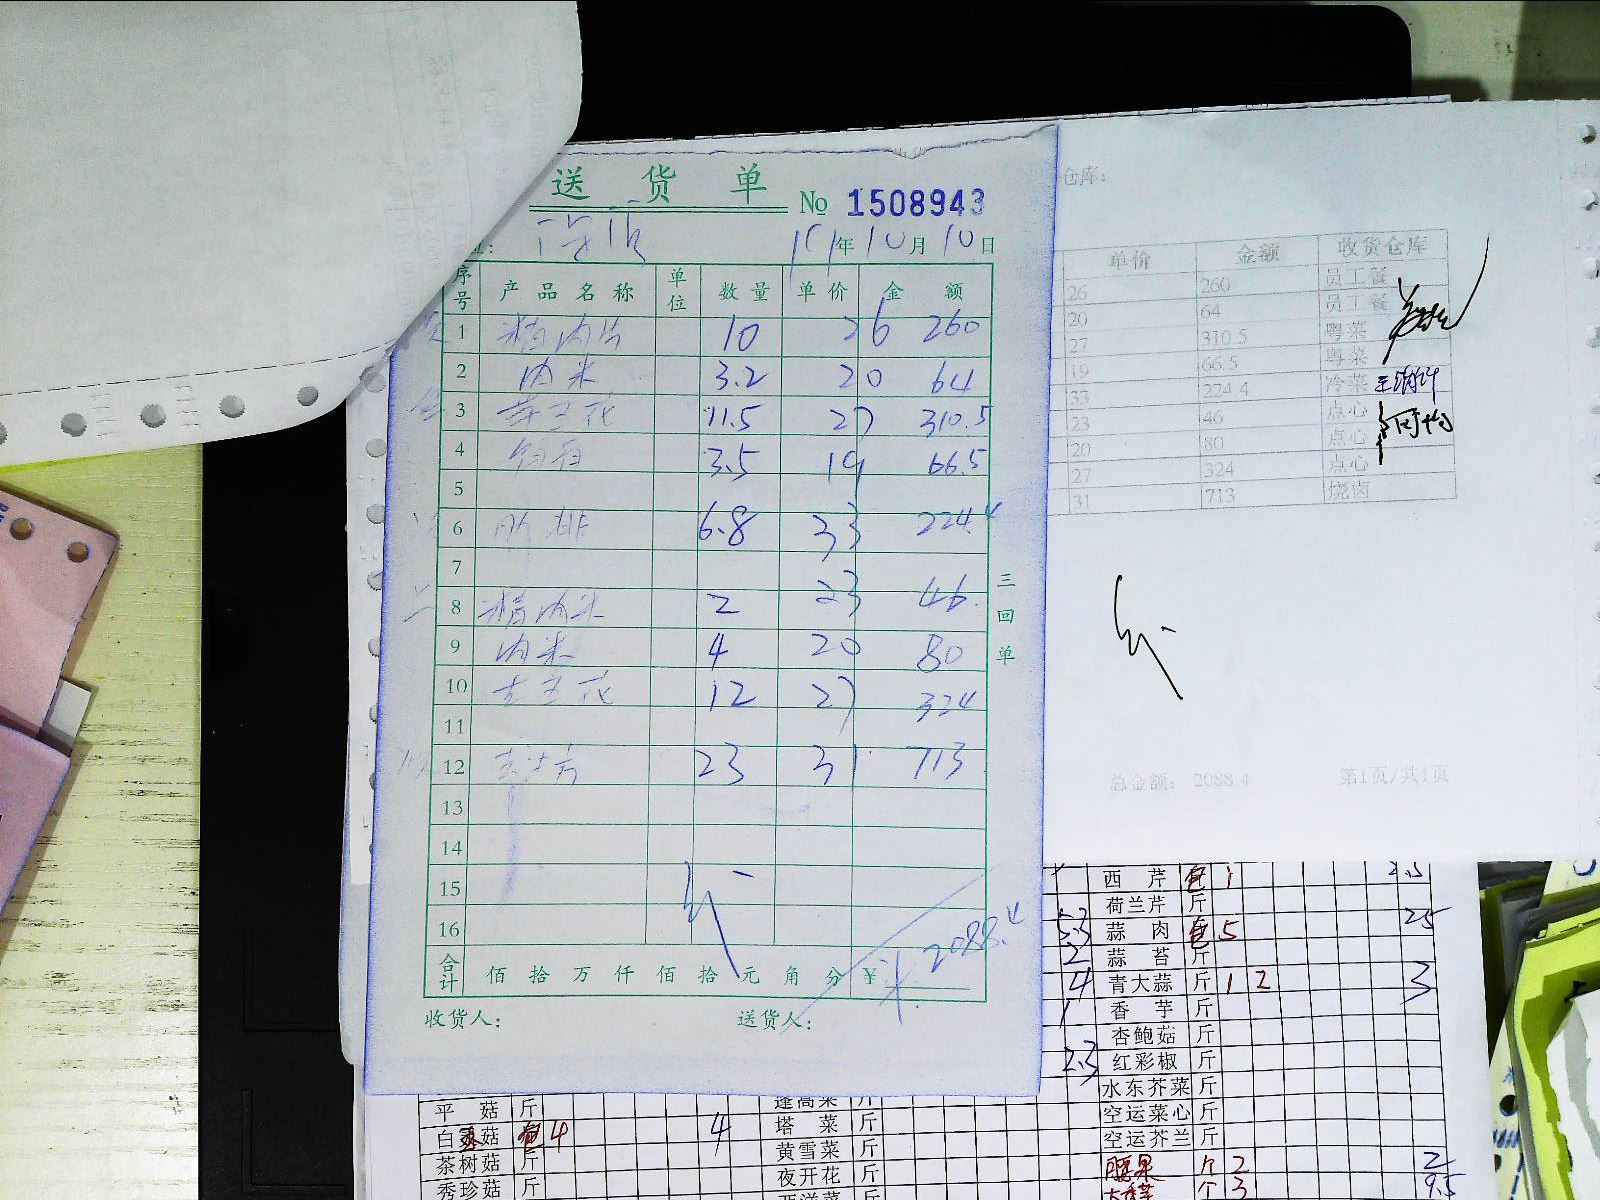 送 货 单
No 1508943
年 10 月 10 日
序号 产品名称 单位 数量 单价 金额
1 精肉片 10 26 260
2 肉米 3.2 20 64
3 11.5 27 310.5
4 3.5 19 66.5
5
6 排 6.8 33 224.4
7
8 精肉米 2 23 46
9 肉米 4 20 80
10 花 12 27 324
11
12 23 31 713
13
14
15
16
合计 佰 拾 万 仟 佰 拾 元 角 分 ¥ 2088.4
收货人: 送货人:
三回单
仓库:
单价 金额 收货仓库
26 260 员工餐
20 64 员工餐
27 310.5 粤菜
19 66.5 粤菜
33 224.4 冷菜
23 46 点心
20 80 点心
27 324 点心
31 713 烧卤
总金额: 2088.4 第1页/共1页
西芹 1 2.5
荷兰芹 斤
5.3 蒜肉 5 25
2 蒜苔 斤
4 青大蒜 斤 1 2 3
1 香芋 斤
杏鲍菇 斤
2.3 红彩椒 斤
水东芥菜 斤
空运菜心 斤
空运芥兰 斤
腰果 个 2 2
个 3 9.5
平菇 斤
白 菇 4 4
茶树菇 斤
秀珍菇 斤
蓬蒿菜 斤
塔菜 斤
黄雪菜 斤
夜开花 斤
西洋菜 斤